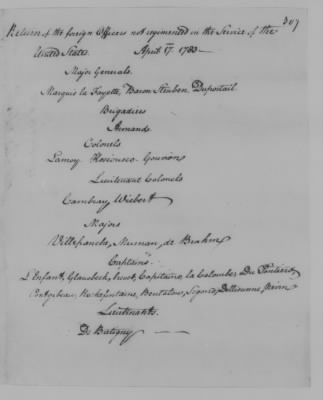 307
Return of the foreign Officers not regimented in the Service of the
United States. April 17. 1783
Major Generals.
Marquis la Fayette, Baron Steuben Duportail
Brigadiers
Armand
Colonels
Kosciusco Gouvion
Lieutenant Colonels
Cambray Wiebert
Majors
Villefranche, de Brahm
Captains
L'Enfant, Glaubech, Capitaine, la Colombe, Du
Rochefontaine, Bentalou, Segond,
Lieutenants.
De Batigny